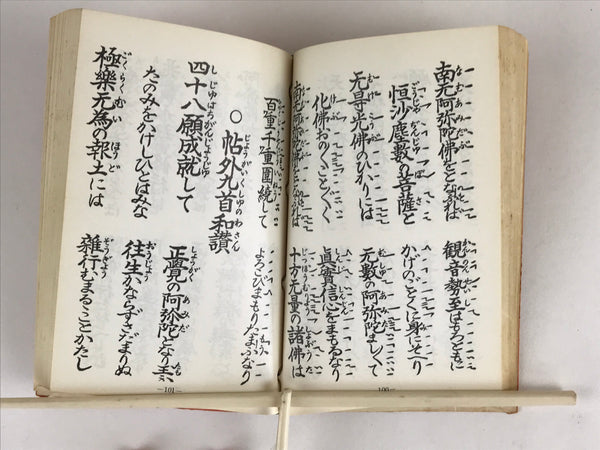 南无阿弥陀佛をとなふれば
観音勢至はもろともに
恒沙塵數の菩薩と
かげのごとくに身にそへり
无㝵光佛のひかりには
无數の阿弥陀ましまして
化佛おの〱こと〲く
眞實信心をまもるなり
南无阿弥陀佛をとなふれば
十方无量の諸佛は
—100—
百重千重圍繞して
よろこびまもりたまふなり
○帖外九首和讃
四十八願成就して
正覺の阿弥陀となり玉ふ
たのみをかけしひとはみな
往生かならずさだまりぬ
極樂无為の報土には
雜行むまることかたし
—101—